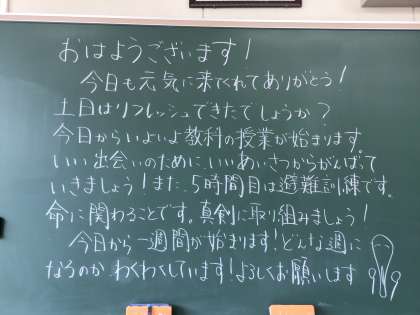 おはようございます!
今日も元気に来てくれてありがとう!
土日はリフレッシュできたでしょうか?
今日からいよいよ教科の授業が始まります。
いい出会いのために、いいあいさつからがんばって
いきましょう!また、5時間目は避難訓練です。
命に関わることです。真剣に取り組みましょう!
今日から一週間が始まります!どんな週に
なるのか、わくわくしています!よろしくお願いします